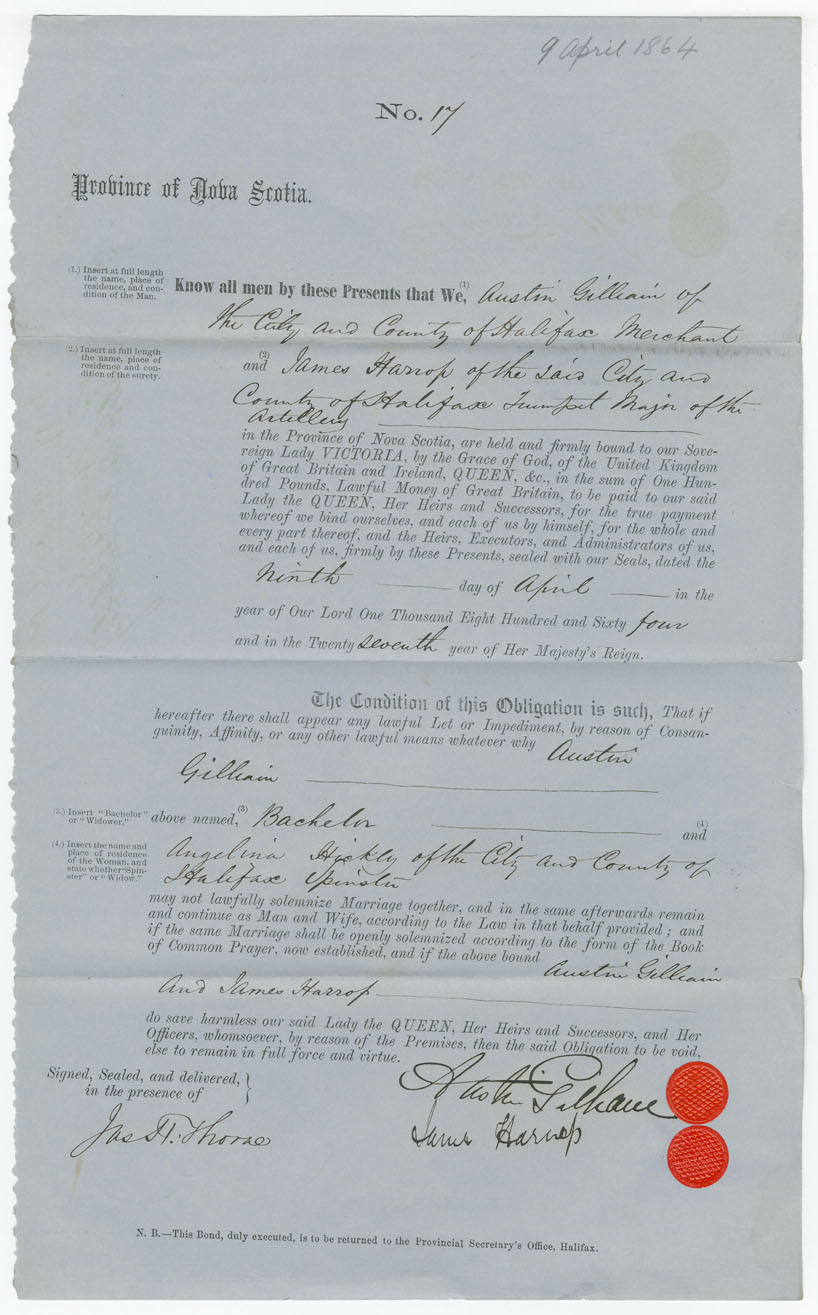 9 April 1864
No. 17
Province of Nova Scotia.
(1.) Insert at full length
the name, place of
residence, and con-
dition of the Man.
Know all men by these Presents that We,(1) Austin Gilliain of
the City and County of Halifax Merchant
(2.) Insert at full length
the name, place of
residence and con-
dition of the surety.
and (2) James Harrop of the said City and
County of Halifax Trumpet Major of the
Artillery
in the Province of Nova Scotia, are held and firmly bound to our Sove-
reign Lady VICTORIA, by the Grace of God, of the United Kingdom
of Great Britain and Ireland, QUEEN, &c., in the sum of One Hun-
dred Pounds, Lawful Money of Great Britain, to be paid to our said
Lady the QUEEN, Her Heirs and Successors, for the true payment
whereof we bind ourselves, and each of us by himself, for the whole and
every part thereof, and the Heirs, Executors, and Administrators of us,
and each of us, firmly by these Presents, sealed with our Seals, dated the
Ninth day of April in the
year of Our Lord One Thousand Eight Hundred and Sixty four
and in the Twenty seventh year of Her Majesty's Reign.
The Condition of this Obligation is such, That if
hereafter there shall appear any lawful Let or Impediment, by reason of Consan-
guinity, Affinity, or any other lawful means whatever why Austin
Gilliain
(3.) Insert "Bachelor"
or "Widower."
above named,(3) Bachelor and (4)
(4.) Insert the name and
place of residence
of the Woman, and
state whether "Spin-
ster" or "Widow."
Angelina Hickly of the City and County of
Halifax Spinster
may not lawfully solemnize Marriage together, and in the same afterwards remain
and continue as Man and Wife, according to the Law in that behalf provided; and
if the same Marriage shall be openly solemnized according to the form of the Book
of Common Prayer, now established, and if the above bound Austin Gilliain
And James Harrop
do save harmless our said Lady the QUEEN, Her Heirs and Successors, and Her
Officers, whomsoever, by reason of the Premises, then the said Obligation to be void,
else to remain in full force and virtue.
Signed, Sealed, and delivered,
in the presence of
Austin
James Harrop
Jas H. Thorne
N. B.—This Bond, duly executed, is to be returned to the Provincial Secretary's Office, Halifax.